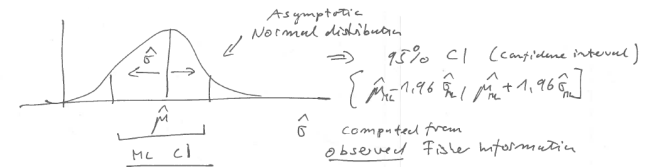 Asymptotic
Normal distribution
σ̂
⇒ 95% CI (confidence interval)
[μ̂_ML - 1,96 σ̂_ML, μ̂_ML + 1,96 σ̂_ML]
μ̂
ML CI
σ̂ computed from
observed Fisher Information